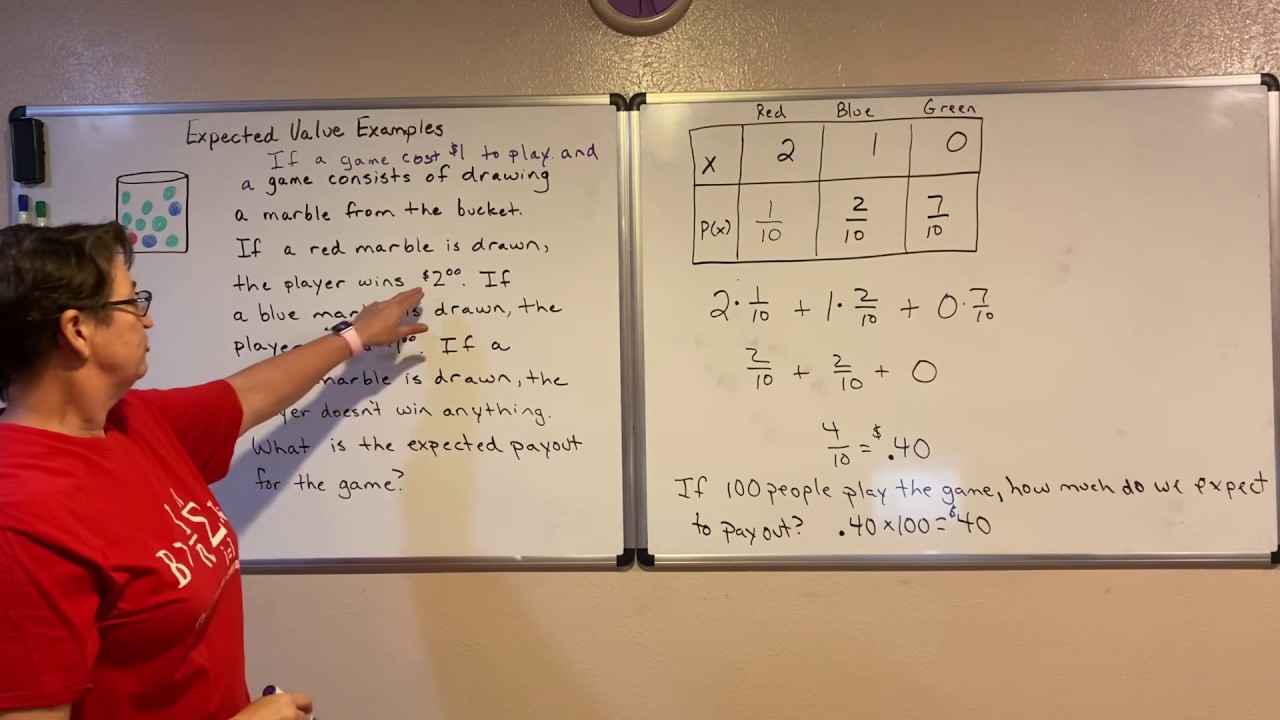 Expected Value Examples
If a game cost $1 to play and
a game consists of drawing
a marble from the bucket.
If a red marble is drawn,
the player wins $2.00. If
a blue drawn, the
If a
marble is drawn, the
doesn't win anything.
What is the expected payout
for the game?
Red Blue Green
X 2 1 0
P(x) 1/10 2/10 7/10
2·1/10 + 1·2/10 + 0·7/10
2/10 + 2/10 + 0
4/10 = $.40
If 100 people play the game, how much do we expect
to pay out? .40×100=$40